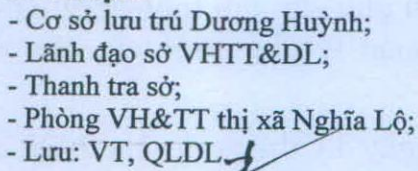 - Cơ sở lưu trú Dương Huỳnh;
- Lãnh đạo sở VHTT&DL;
- Thanh tra sở;
- Phòng VH&TT thị xã Nghĩa Lộ;
- Lưu: VT, QLDL.